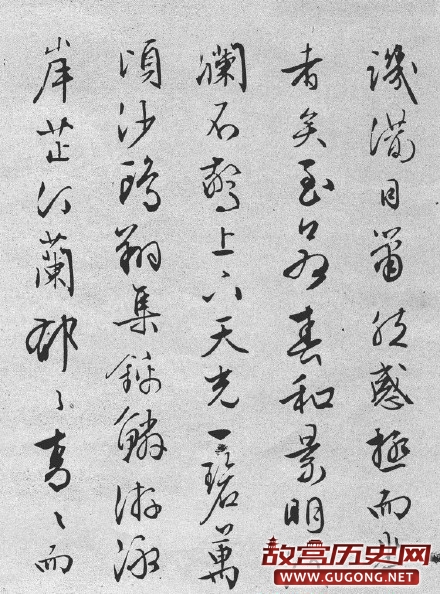 譏滿目蕭然感極而悲
者矣至若春和景明波
瀾不驚上下天光一碧萬
頃沙鷗翔集錦鱗游泳
岸芷汀蘭郁々青々而
故宫历史网
WWW.GUGONG.NET